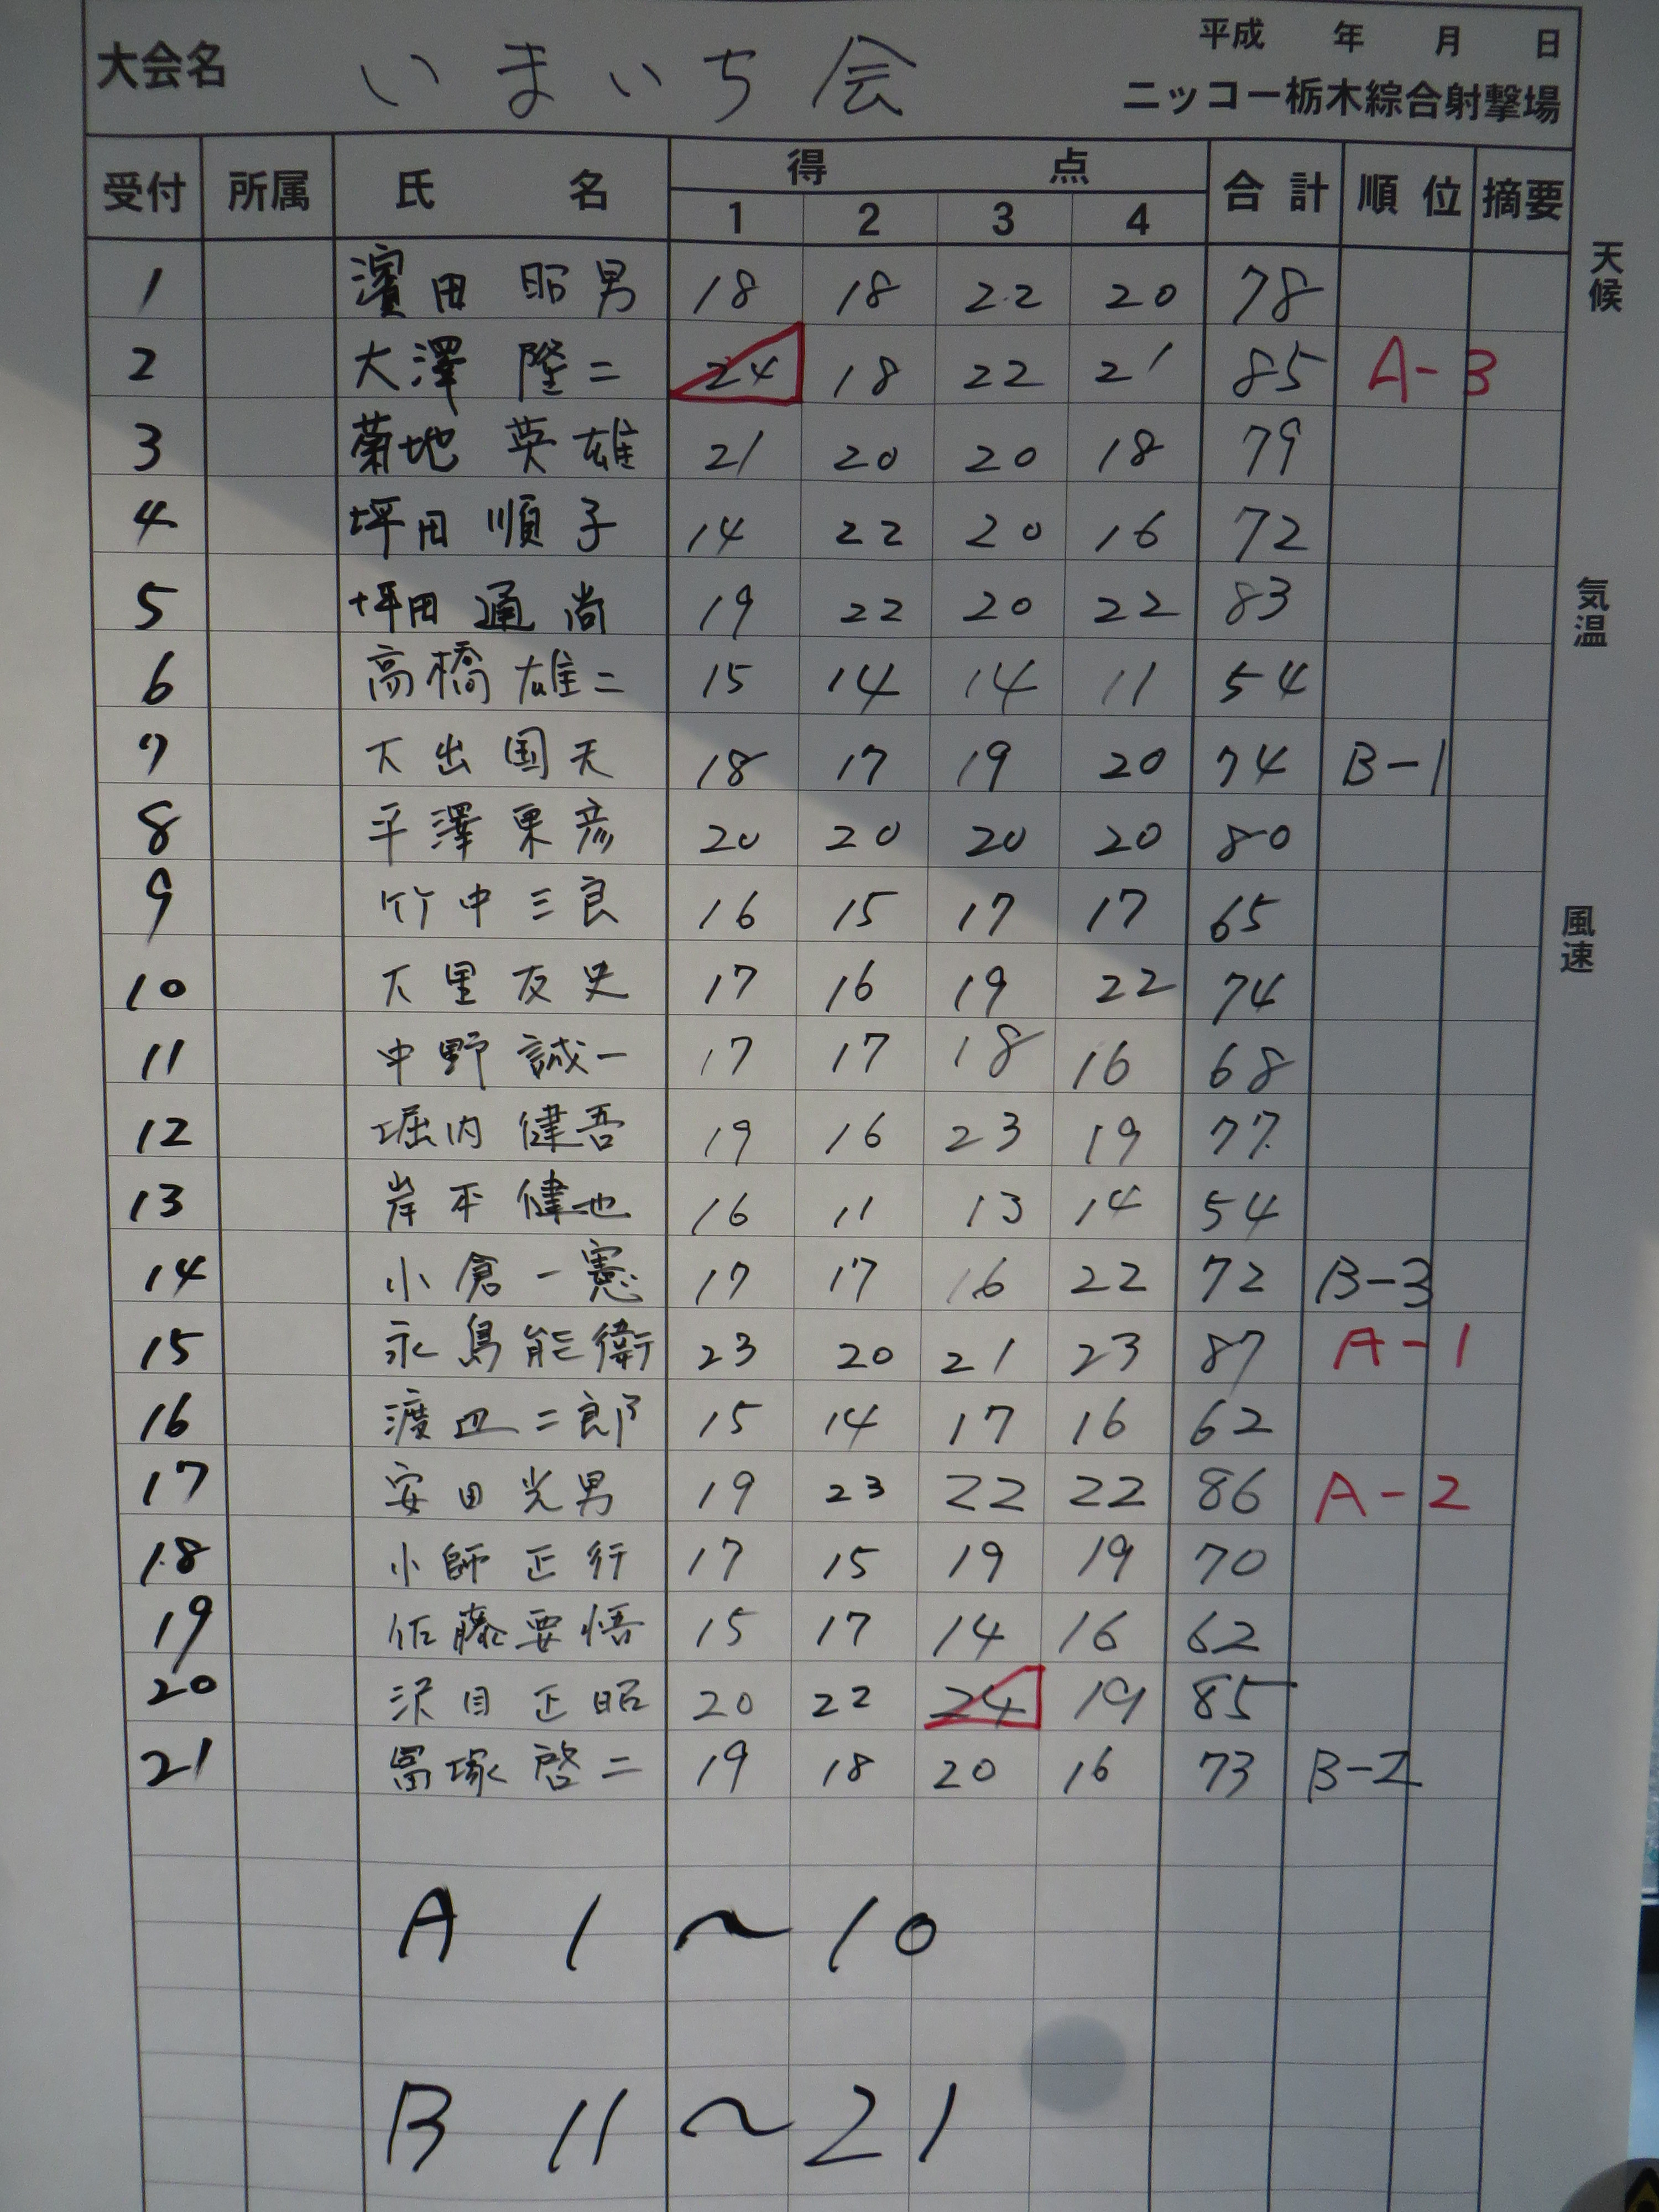 平成 年 月 日
大会名 いまいち会
ニッコー栃木綜合射撃場
受付 所属 氏 名 得 点 合計 順位 摘要
1 2 3 4
1 濱田 昭男 18 18 22 20 78
2 大澤 隆二 24 18 22 21 85 A-3
3 菊地 英雄 21 20 20 18 79
4 坪田 順子 14 22 20 16 72
5 坪田 通尚 19 22 20 22 83
6 高橋 雄二 15 14 14 11 54
7 大出国夫 18 17 19 20 74 B-1
8 平澤 彦 20 20 20 20 80
9 竹中三良 16 15 17 17 65
10 大里友史 17 16 19 22 74
11 中野誠一 17 17 18 16 68
12 堀内健吾 19 16 23 19 77
13 岸平健也 16 11 13 14 54
14 小倉一憲 17 17 16 22 72 B-3
15 永島能衛 23 20 21 23 87 A-1
16 渡辺二郎 15 14 17 16 62
17 安田光男 19 23 22 22 86 A-2
18 小師正行 17 15 19 19 70
19 佐藤要悟 15 17 14 16 62
20 沢目正昭 20 22 24 19 85
21 冨塚啓二 19 18 20 16 73 B-2
A 1〜10
B 11〜21
天候
気温
風速